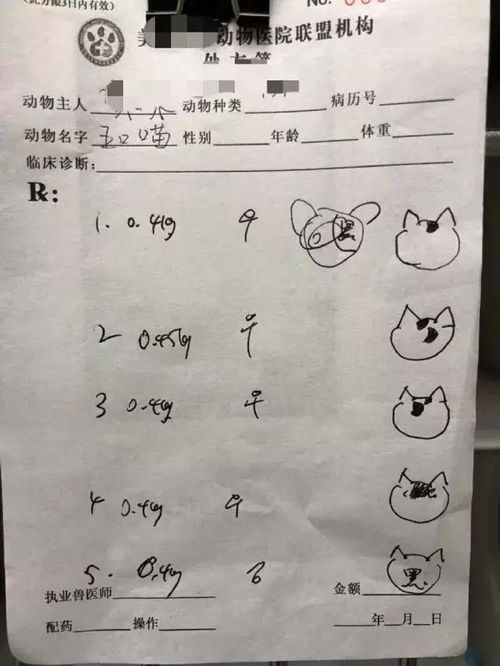 (此方限3日内有效) No.
动物医院联盟机构
处方笺
动物主人 动物种类 病历号
动物名字 喵 性别 年龄 体重
临床诊断:
R:
1. 0.41g ♀ 黑
2 0.45g ♀
3 0.4g ♀
4 0.4g ♀
5. 0.4g 黑
执业兽医师 金额
配药 操作 年 月 日